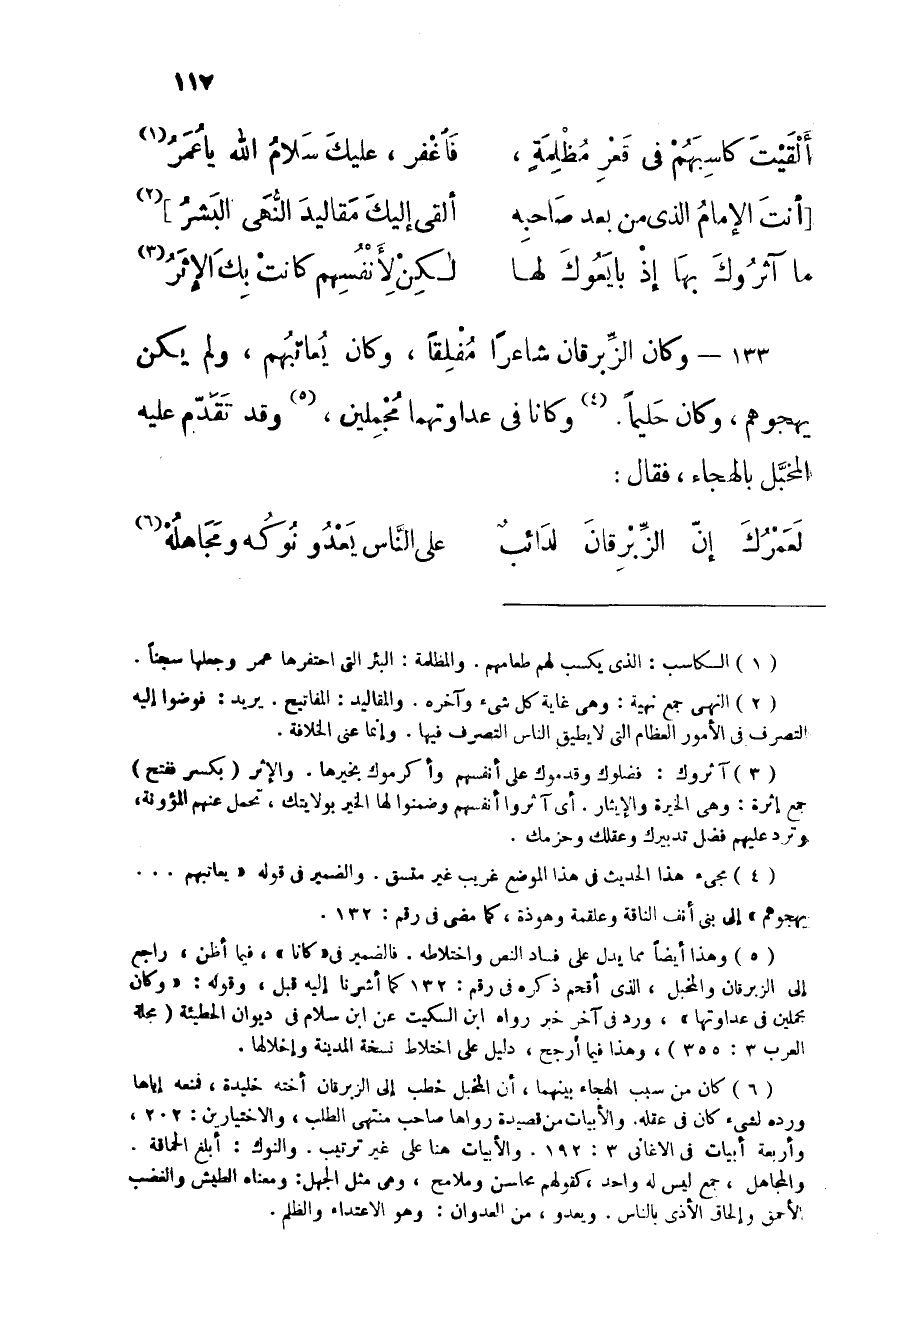 ١١٧
أَلْقَيْتَ كاسِبَهُمْ فى قَعْرِ مُظْلِمَةٍ ، فَاغْفر ، عليكَ سَلامُ الله ياعُمَرُ(١)
[أنتَ الإمامُ الذى من بعد صَاحبِه ألقى إليكَ مَقاليدَ النُّهَى البَشرُ](٢)
ما آثرُوكَ بِهَا إذْ بايَعُوكَ لهـا لـٰكِنْ لِأَنْفُسِهم كانتْ بِكَ الإِثَرُ(٣)
١٣٣ — وكان الزِّبرقان شاعرًا مُفْلِقاً ، وكان يُعاتبُهم ، ولم يكن
يهجوهم ، وكان حَليماً . (٤) وكانا فى عداوتهما مُجْمِلين ، (٥) وقد تَقَدّم عليه
المخَبَّل بالهجاء ، فقال :
لَعَمْرُكَ إنّ الزِّبْرِقانَ لدَائبٌ على النَّاس يَعْدُو نُوكُه ومَجَاهلُهْ(٦)
( ١ ) الـكاسب : الذى يكسب لهم طعامهم . والمظلمة : البئر التى احتفرها عمر وجعلها سجناً .
( ٢ ) النهى جمع نهية : وهى غاية كل شىء وآخره . والمقاليد : المفاتيح . يريد : فوضوا إليه
التصرف فى الأمور العظام التى لايطيق الناس التصرف فيها . وإنما عنى الخلافة .
( ٣ ) آثروك : فضلوك وقدموك على أنفسهم وأكرموك بخيرها . والإثر ( بكسر ففتح )
جمع إثرة : وهى الخيرة والإيثار . أى آثروا أنفسهم وضمنوا لها الخير بولايتك ، تحمل عنهم المؤونة،
وترد عليهم فضل تدبيرك وعقلك وحزمك .
( ٤ ) مجىء هذا الحديث فى هذا الموضع غريب غير متسق . والضمير فى قوله « يعاتبهم . . .
يهجوهم » إلى بنى أنف الناقة وعلقمة وهوذة ، كما مضى فى رقم : ١٣٢ .
( ٥ ) وهذا أيضاً مما يدل على فساد النص واختلاطه . فالضمير فى «كانا » ، فيما أظن ، راجع
إلى الزبرقان والمخبل ، الذى أقحم ذكره فى رقم : ١٣٢ كما أشرنا إليه قبل ، وقوله : « وكان
مجملين فى عداوتها » ، ورد فى آخر خبر رواه ابن السكيت عن ابن سلام فى ديوان الحطيئة ( مجلة
العرب ٣ : ٣٥٥ ) ، وهذا فيما أرجح ، دليل على اختلاط نسخة المدينة وإخلالها .
( ٦ ) كان من سبب الهجاء بينهما ، أن المخبل خطب إلى الزبرقان أخته خليدة ، فمنعه إياها
ورده لشىء كان فى عقله. والأبيات من قصيدة رواها صاحب منتهى الطلب ، والاختيارين : ٢٠٢ ،
وأربعة أبيات فى الاغانى ٣ : ١٩٢ . والأبيات هنا على غير ترتيب . والنوك : أبلغ الحماقة .
والمجاهل ، جمع ليس له واحد ، كقولهم محاسن وملامح ، وهى مثل الجهل: ومعناه الطيش والغضب
الأحمق وإلحاق الأذى بالناس . ويعدو ، من العدوان : وهو الاعتداء والظلم .